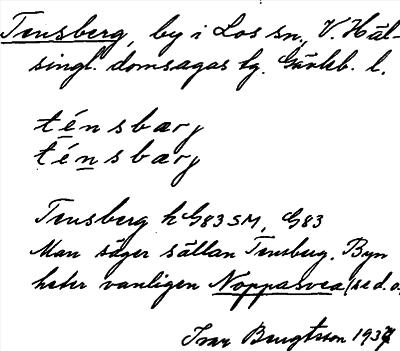 Tensberg, by i Los sn, V. Häl-
singl. domsagas tg. Gävleb. l.
ténsbærj
ténsbærj
Tensberg hG83SM, G83
Man säger sällan Tensberg. Byn
heter vanligen Noppasvea (se d.o.
Ivar Bengtsson 1937